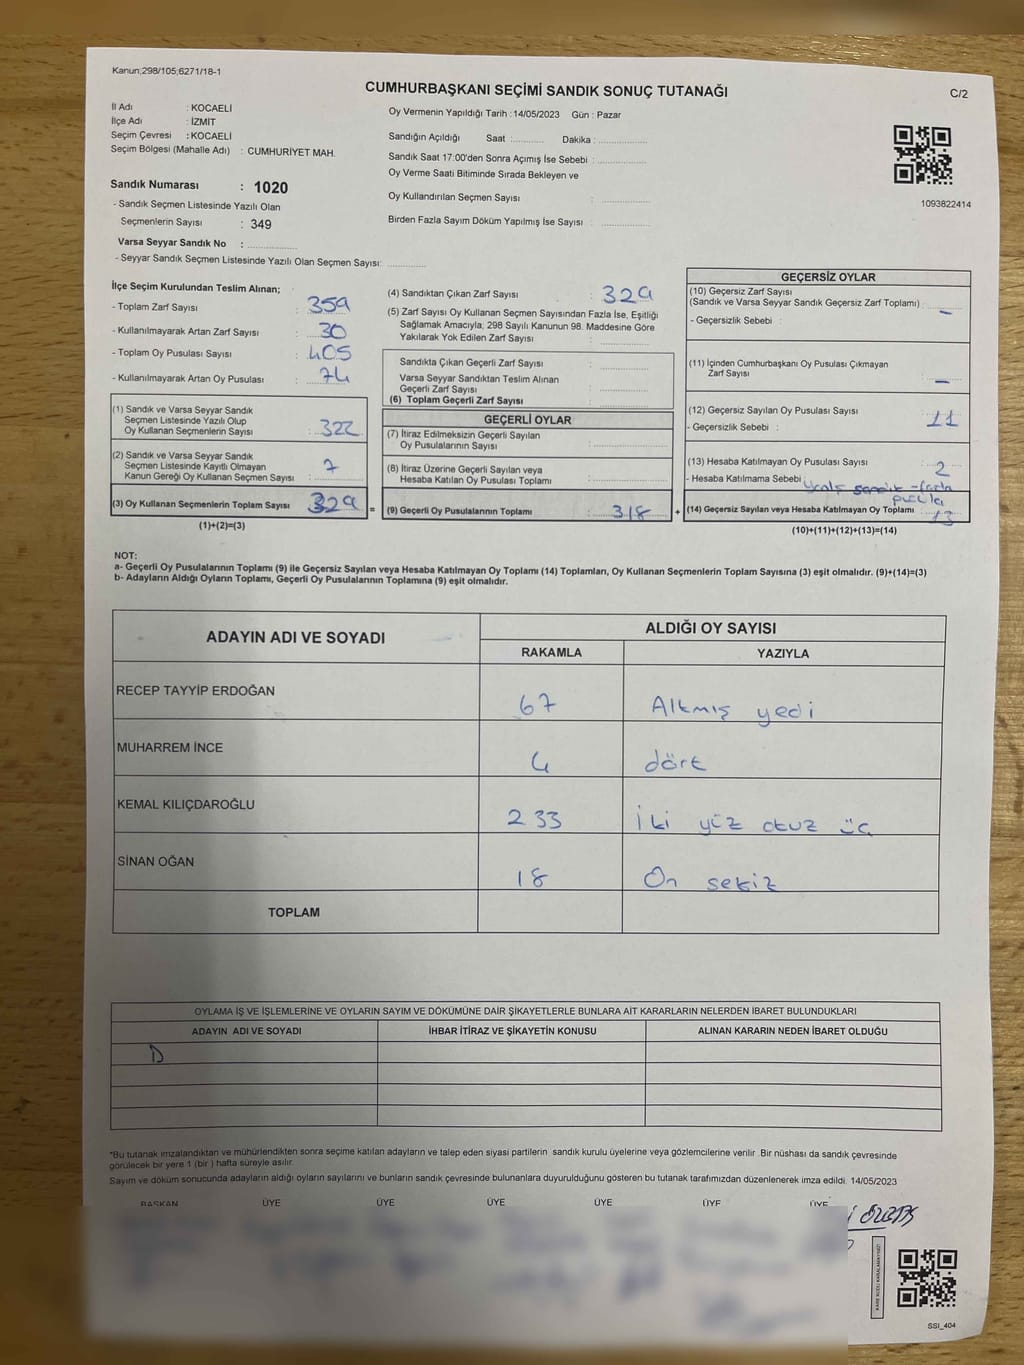 Kanun;298/105;6271/18-1
CUMHURBAŞKANI SEÇİMİ SANDIK SONUÇ TUTANAĞI
C/2
İl Adı : KOCAELİ
İlçe Adı : İZMİT
Seçim Çevresi : KOCAELİ
Seçim Bölgesi (Mahalle Adı) : CUMHURİYET MAH.
Sandık Numarası : 1020
- Sandık Seçmen Listesinde Yazılı Olan
Seçmenlerin Sayısı : 349
Varsa Seyyar Sandık No :
- Seyyar Sandık Seçmen Listesinde Yazılı Olan Seçmen Sayısı:
Oy Vermenin Yapıldığı Tarih :14/05/2023 Gün : Pazar
Sandığın Açıldığı Saat : Dakika :
Sandık Saat 17:00'den Sonra Açımış İse Sebebi :
Oy Verme Saati Bitiminde Sırada Bekleyen ve
Oy Kullandırılan Seçmen Sayısı :
Birden Fazla Sayım Döküm Yapılmış İse Sayısı :
1093822414
İlçe Seçim Kurulundan Teslim Alınan;
- Toplam Zarf Sayısı : 359
- Kullanılmayarak Artan Zarf Sayısı : 30
- Toplam Oy Pusulası Sayısı : 405
- Kullanılmayarak Artan Oy Pusulası : 74
(1) Sandık ve Varsa Seyyar Sandık
Seçmen Listesinde Yazılı Olup
Oy Kullanan Seçmenlerin Sayısı : 322
(2) Sandık ve Varsa Seyyar Sandık
Seçmen Listesinde Kayıtlı Olmayan
Kanun Gereği Oy Kullanan Seçmen Sayısı : 7
(3) Oy Kullanan Seçmenlerin Toplam Sayısı 329
(1)+(2)=(3)
=
(4) Sandıktan Çıkan Zarf Sayısı : 329
(5) Zarf Sayısı Oy Kullanan Seçmen Sayısından Fazla İse, Eşitliği
Sağlamak Amacıyla; 298 Sayılı Kanunun 98. Maddesine Göre
Yakılarak Yok Edilen Zarf Sayısı :
Sandıkta Çıkan Geçerli Zarf Sayısı :
Varsa Seyyar Sandıktan Teslim Alınan
Geçerli Zarf Sayısı :
(6) Toplam Geçerli Zarf Sayısı :
GEÇERLİ OYLAR
(7) İtiraz Edilmeksizin Geçerli Sayılan
Oy Pusulalarının Sayısı :
(8) İtiraz Üzerine Geçerli Sayılan veya
Hesaba Katılan Oy Pusulası Toplamı :
(9) Geçerli Oy Pusulalarının Toplamı : 318
+
GEÇERSİZ OYLAR
(10) Geçersiz Zarf Sayısı
(Sandık ve Varsa Seyyar Sandık Geçersiz Zarf Toplamı) : -
- Geçersizlik Sebebi :
(11) İçinden Cumhurbaşkanı Oy Pusulası Çıkmayan
Zarf Sayısı : -
(12) Geçersiz Sayılan Oy Pusulası Sayısı : 11
- Geçersizlik Sebebi :
(13) Hesaba Katılmayan Oy Pusulası Sayısı : 2
- Hesaba Katılmama Sebebi sandık -fazla
pusula
(14) Geçersiz Sayılan veya Hesaba Katılmayan Oy Toplamı : 13
(10)+(11)+(12)+(13)=(14)
NOT:
a- Geçerli Oy Pusulalarının Toplamı (9) ile Geçersiz Sayılan veya Hesaba Katılmayan Oy Toplamı (14) Toplamları, Oy Kullanan Seçmenlerin Toplam Sayısına (3) eşit olmalıdır. (9)+(14)=(3)
b- Adayların Aldığı Oyların Toplamı, Geçerli Oy Pusulalarının Toplamına (9) eşit olmalıdır.
ADAYIN ADI VE SOYADI
ALDIĞI OY SAYISI
RAKAMLA YAZIYLA
RECEP TAYYİP ERDOĞAN 67 Altmış yedi
MUHARREM İNCE 4 dört
KEMAL KILIÇDAROĞLU 233 İki yüz otuz üç
SİNAN OĞAN 18 On sekiz
TOPLAM
OYLAMA İŞ VE İŞLEMLERİNE VE OYLARIN SAYIM VE DÖKÜMÜNE DAİR ŞİKAYETLERLE BUNLARA AİT KARARLARIN NELERDEN İBARET BULUNDUKLARI
ADAYIN ADI VE SOYADI İHBAR İTİRAZ VE ŞİKAYETİN KONUSU ALINAN KARARIN NEDEN İBARET OLDUĞU
*Bu tutanak imzalandıktan ve mühürlendikten sonra seçime katılan adayların ve talep eden siyasi partilerin sandık kurulu üyelerine veya gözlemcilerine verilir .Bir nüshası da sandık çevresinde
görülecek bir yere 1 (bir ) hafta süreyle asılır.
Sayım ve döküm sonucunda adayların aldığı oyların sayılarını ve bunların sandık çevresinde bulunanlara duyurulduğunu gösteren bu tutanak tarafımızdan düzenlenerek imza edildi. 14/05/2023
BAŞKAN ÜYE ÜYE ÜYE ÜYE ÜYE ÜYE
KARE KODU KARALAMAYINIZ!
SSI_404